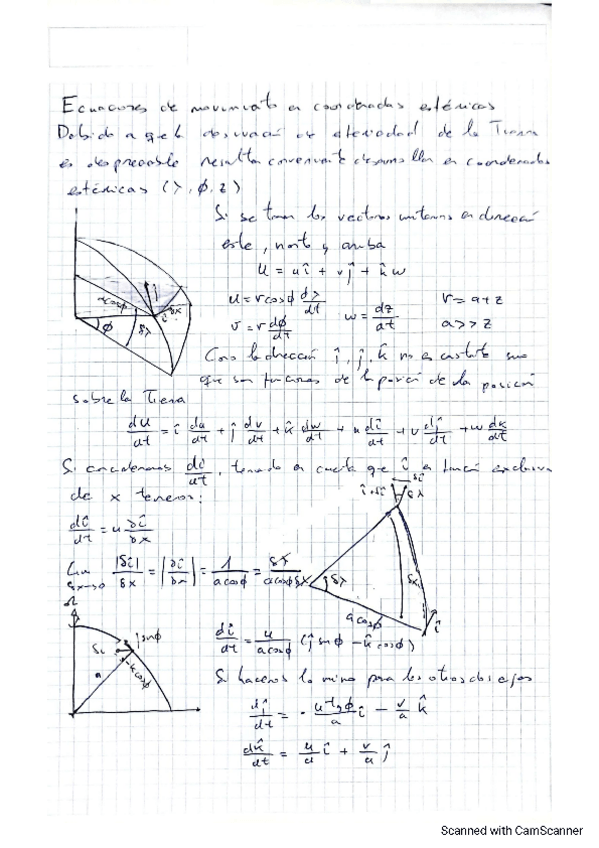 Ecuaciones de movimiento en coordenadas esféricas
Debido a que la desviación de esfericidad de la Tierra
es despreciable resulta conveniente desarrollar en coordenadas
esféricas (λ, φ, z)
Si se toman los vectores unitarios en dirección
este, norte y arriba
U = uî + vĵ + k̂w
u = r cosφ dλ/dt
r = a+z
v = r dφ/dt
w = dz/dt
a >> z
Como la dirección î, ĵ, k̂ no es constante sino
que son funciones de la posición de la posición
sobre la Tierra
dU/dt = î du/dt + ĵ dv/dt + k̂ dw/dt + u dî/dt + v dĵ/dt + w dk̂/dt
Si consideramos dî/dt, teniendo en cuenta que î es función exclusiva
de x tenemos:
dî/dt = u ∂î/∂x
Lim δx→0 |δî|/δx = |∂î/∂x| = 1/(a cosφ) = δλ/(a cosφ δλ)
dî/dt = u/(a cosφ) (ĵ sinφ - k̂ cosφ)
Si hacemos lo mismo para los otros dos ejes
dĵ/dt = - u tgφ/a î - v/a k̂
dk̂/dt = u/a î + v/a ĵ
Scanned with CamScanner